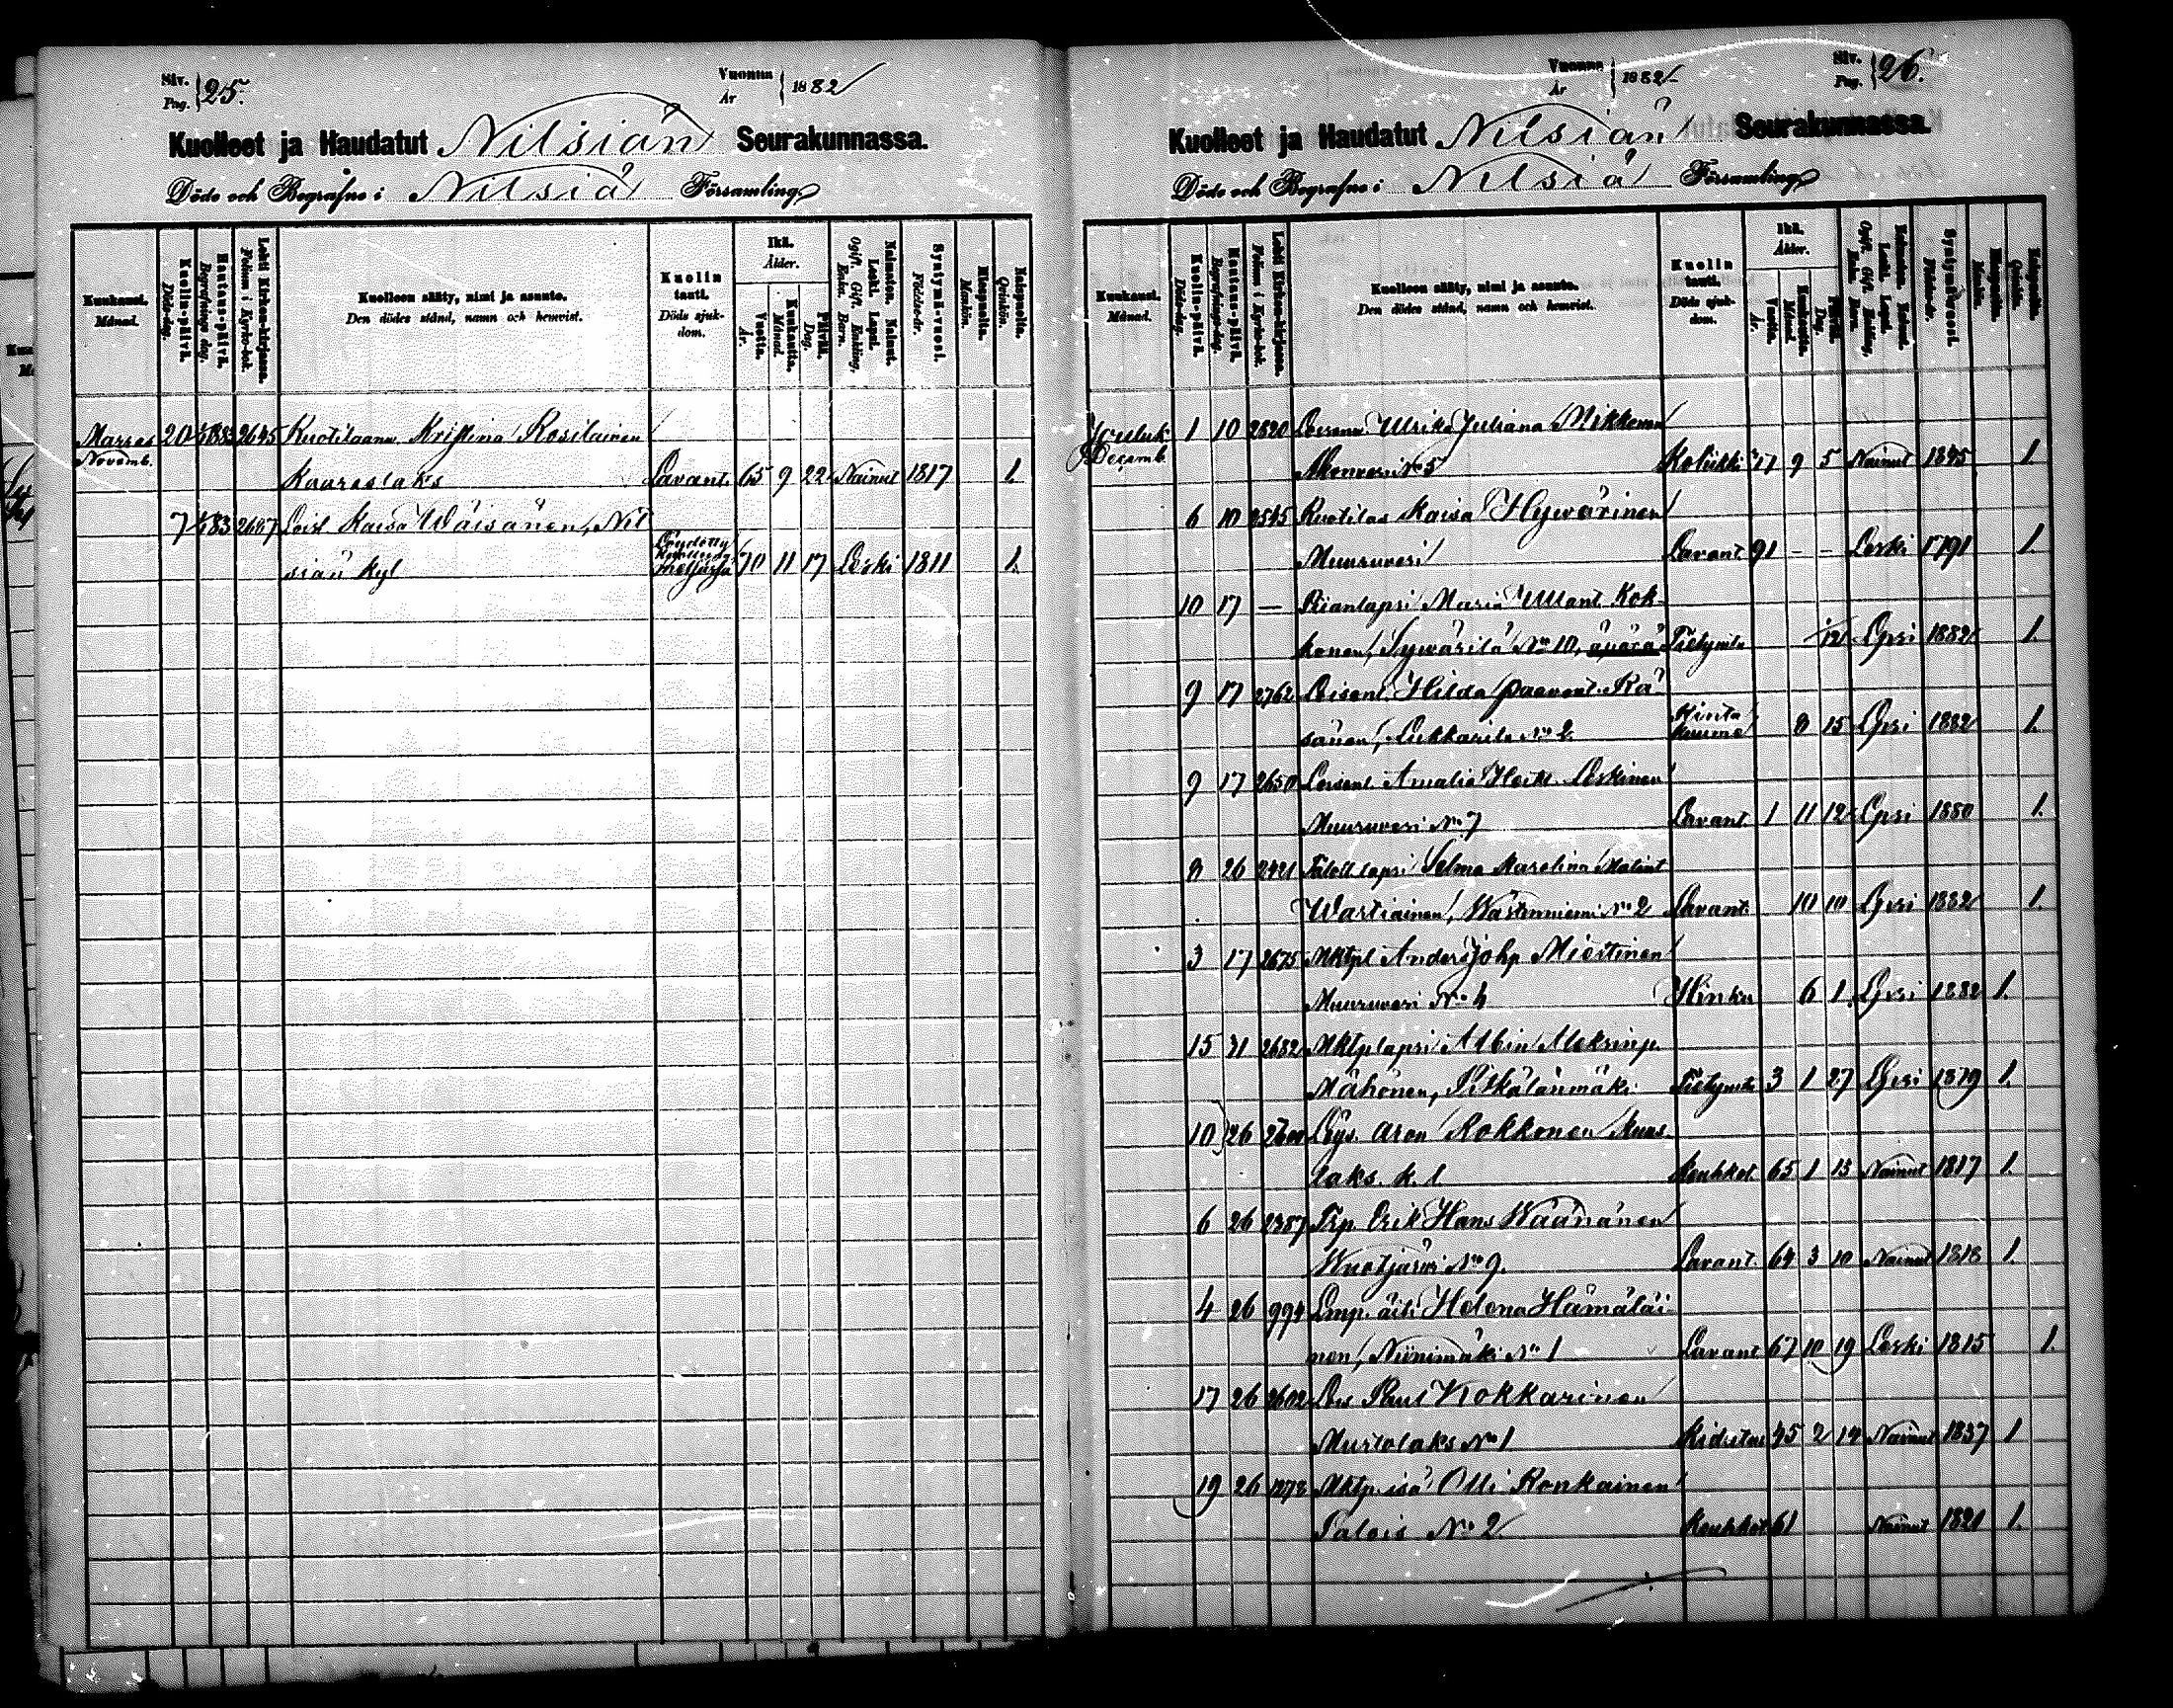 Siv. Pag. 25. Vuonna År 1882
Kuolleet ja Haudatut Nilsiän Seurakunnassa.
Döde och Begrafne i Nilsiä Församling
Kuukausi. Månad.
Kuolin-päivä. Döds-dag.
Hautaus-päivä. Begrafnings dag.
Lehti Kirkon-kirjassa. Folium i Kyrko-bok.
Kuolleen sääty, nimi ja asunto.
Den dödes stånd, namn och hemvist.
Kuolin tauti. Döds sjuk-dom.
Ikä. Ålder.
Vuotta. År.
Kuukautta. Månad.
Päivää. Dag.
Naimaton. Nainut. Leski. Lapsi.
Ogift. Gift. Enkling. Enka. Barn.
Syntymä-vuosi. Födelse-år.
Miespuolia. Mankön.
Naispuolia. Qvinkön.
Marras 20 2645 Ruotilaanv. Kristina Rosilainen
Novemb.
Kaaraslaks Lavant. 65 9 22 Nainut 1817 1.
7 2697 Loisl. Kaisa Wäisänen, Nil
siän kyl 70 11 17 Leski 1811 1.
Siv. Pag. 26. Vuonna År 1882
Kuolleet ja Haudatut Nilsiän Seurakunnassa.
Döde och Begrafne i Nilsiä Församling
Kuukausi. Månad.
Kuolin-päivä. Döds-dag.
Hautaus-päivä. Begrafnings-dag.
Lehti Kirkon-kirjassa. Folium i Kyrko-bok.
Kuolleen sääty, nimi ja asunto.
Den dödes stånd, namn och hemvist.
Kuolin tauti. Döds sjuk-dom.
Ikä. Ålder.
Vuotta. År.
Kuukautta. Månad.
Päivää. Dag.
Syntymä-vuosi. Födelse-år.
Miespuolia. Mankön.
Naispuolia. Qvinkön.
Jouluk. 1 10 2820 Ulrika Juliana Mikkonen
Decemb. Akonvesi No 5 Kolikki 9 5 Nainut 1845 1.
6 10 2545 Ruotilas Kaisa Hyvärinen
Muuruvesi Lavant 91 - - Leski 1791 1.
10 17 — Piianlapsi Maria Ullant. Kok-
konen, Sywärilä No 10, äpärä 1882 1.
9 17 2762 Loisent. Hilda Paavont. Rä
sänen, Lukkarila No 2 Hinta kuume 8 15 Lpsi 1882 1.
9 17 2650 Loisent. Amalia Heikt. Leskinen
Muuruvesi No 7 Lavant 1 11 12 Lpsi 1880 1.
8 26 2421 Talolllapsi Selma Karolina Matint
Wartiainen, No 2 Lavant. 10 10 Lpsi 1882 1.
3 17 2675 Mktpl Anders Johp Miettinen
Muuruvesi No 4 Hinku 6 1 Lpsi 1882 1.
15 31 2682 Mktplapsi Albin
Mähönen, Pitkälänmäki 3 1 27 Lpsi 1879 1.
10 26 Aron Kokkonen Muus-
laks. k. l. Keuhkot. 65 1 13 Nainut 1817 1.
6 26 2357 Erik Hans Wäänänen
Wuotjärvi No 9. Lavant. 64 3 10 Nainut 1818 1.
4 26 994 Lmp. äiti Helena Hämäläi-
nen, Niinimäki No 1 Lavant 67 10 19 Leski 1815 1.
17 26 2602 Lois Paul Kokkarinen
Murtolaks No 1 45 2 14 Nainut 1837 1
19 26 Mktp. isä Olli Ronkainen
Palois No 2 Keuhkot 61 Nainut 1821 1.